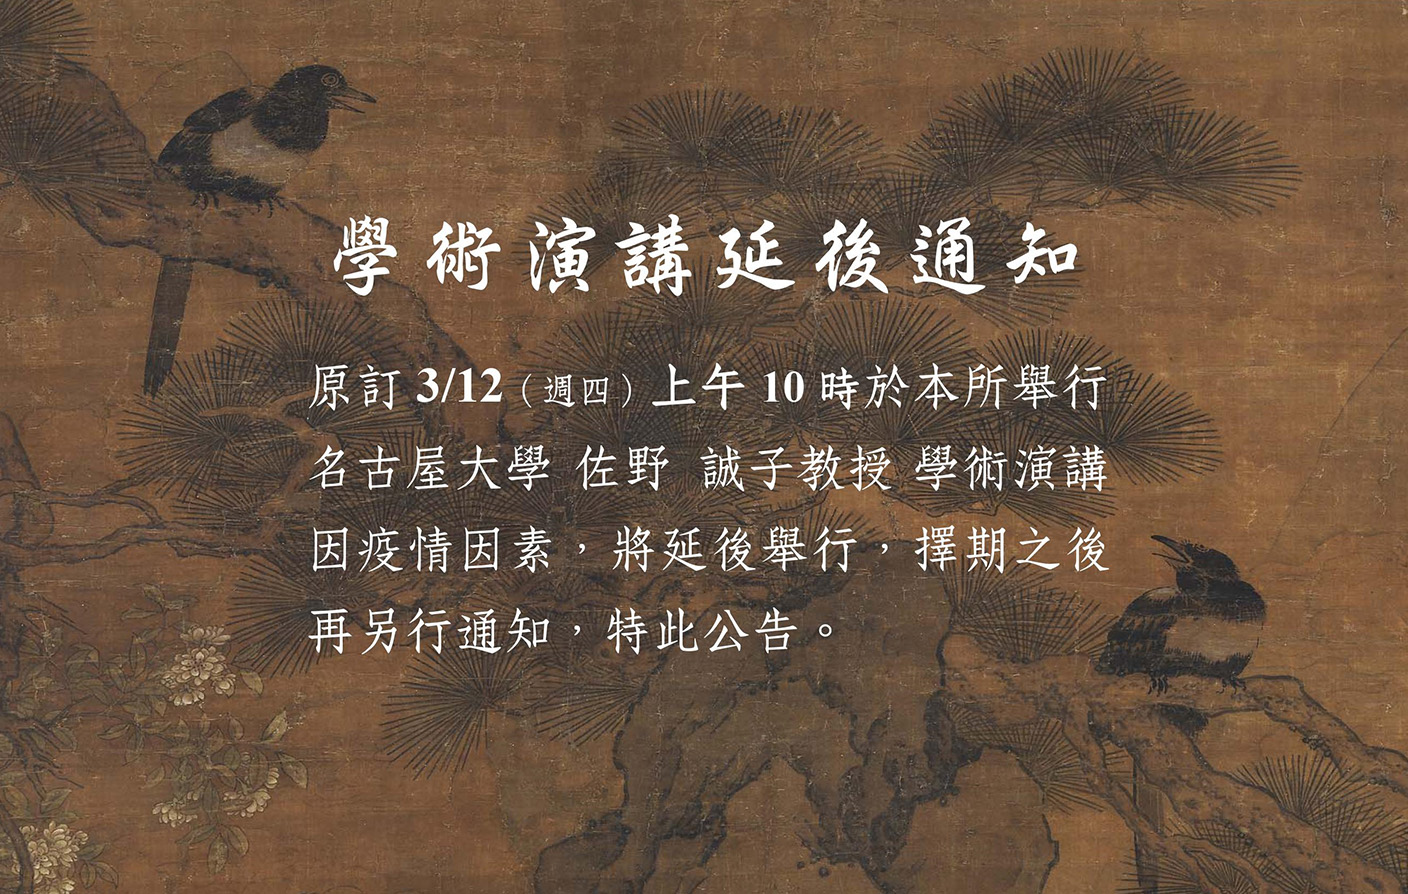 學術演講延後通知
原訂 3/12（週四）上午 10 時於本所舉行
名古屋大學 佐野 誠子教授 學術演講
因疫情因素，將延後舉行，擇期之後
再另行通知，特此公告。